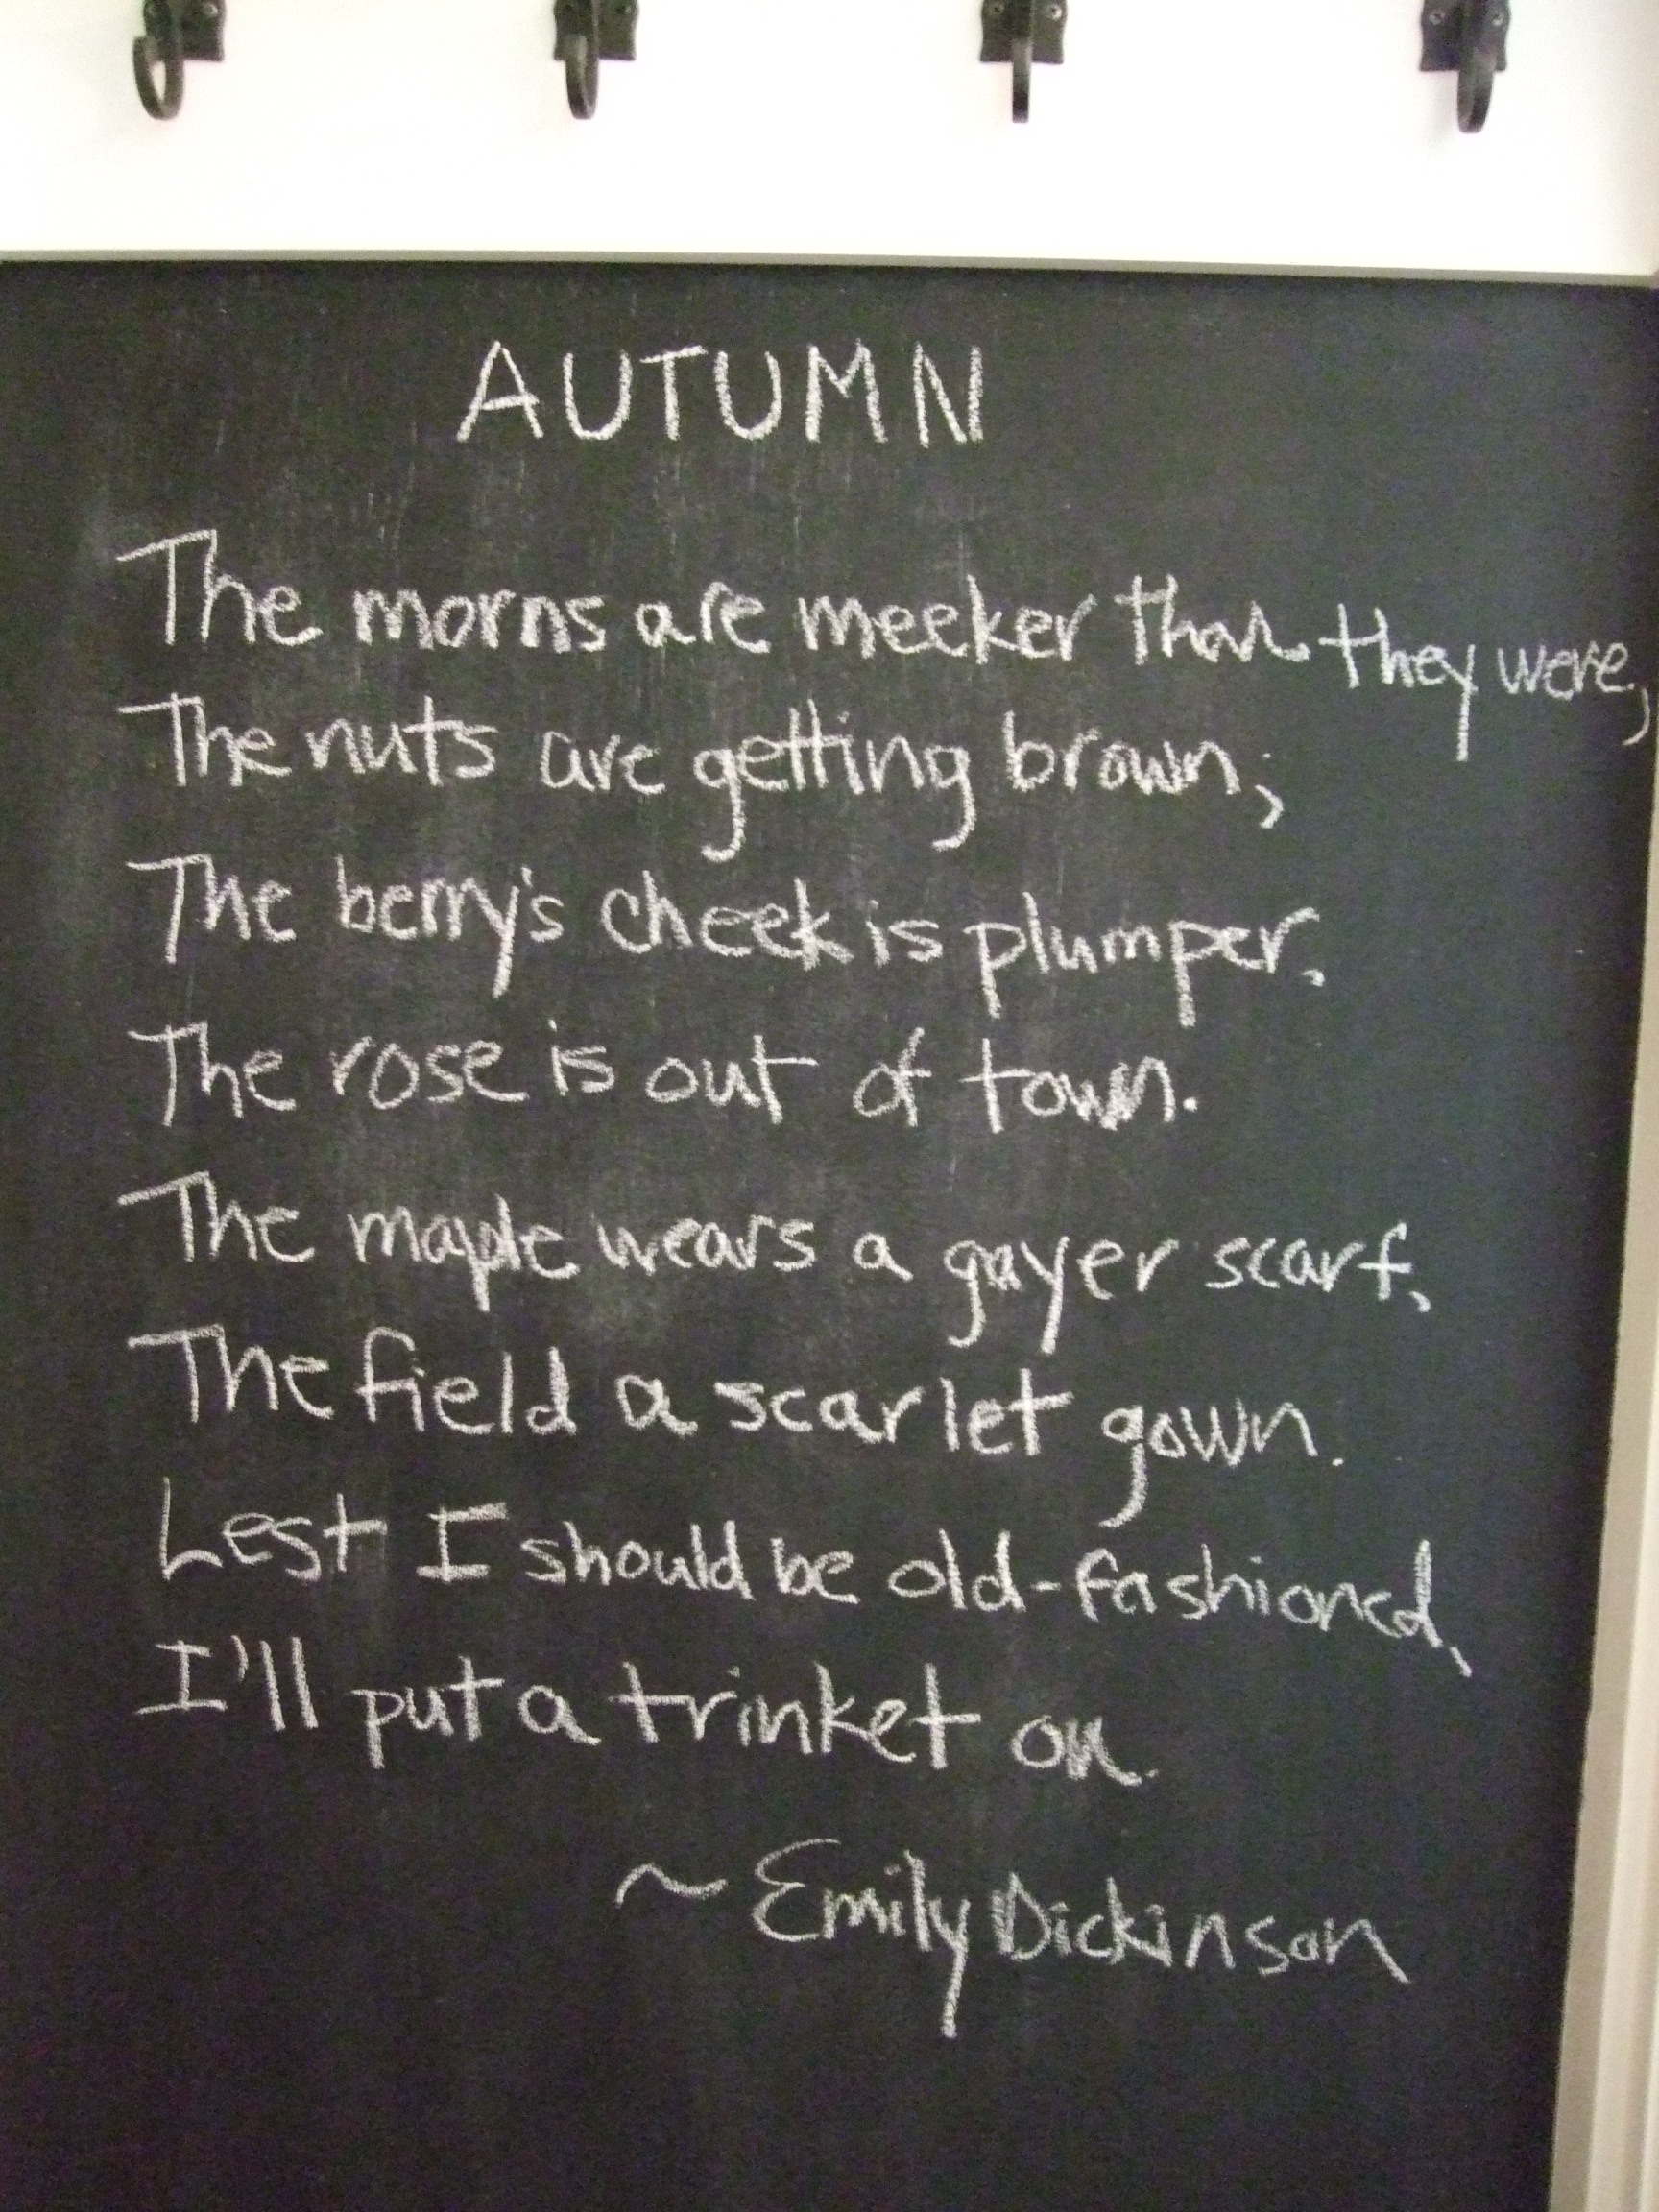 AUTUMN
The morns are meeker than they were,
The nuts are getting brown;
The berry's cheek is plumper,
The rose is out of town.
The maple wears a gayer scarf,
The field a scarlet gown.
Lest I should be old-fashioned,
I'll put a trinket on.
~ Emily Dickinson